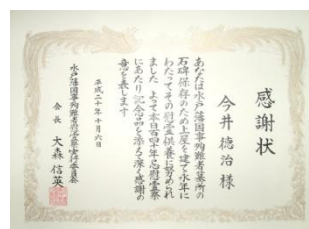 感謝状
今井徳治 様
あなたは水戸藩国事殉難者墓所の
石碑保存のため上屋を建て永年に
わたってその慰霊供養に努められ
ました よって本日百四十年忌慰霊祭
にあたり記念品を添えて深く感謝の
意を表します
平成二十年十月六日
水戸藩国事殉難者慰霊祭実行委員会
会長 大森信英